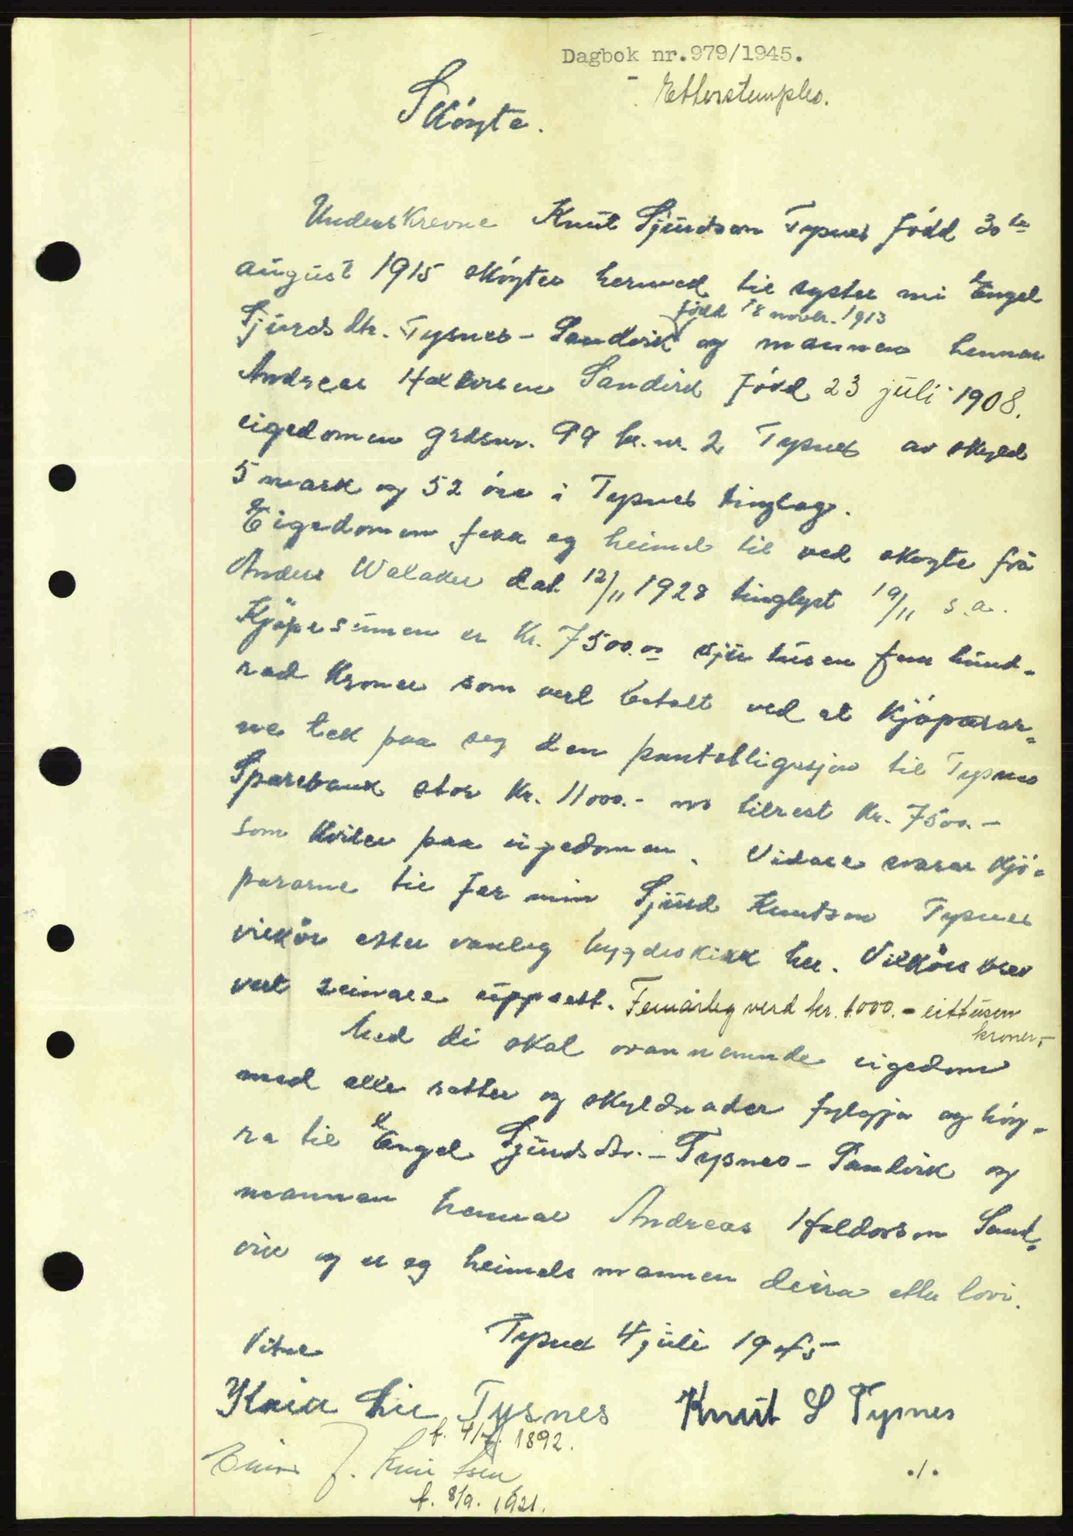 Dagbok nr.979/1945.
Etterstemples.
Skøyte.
Underskrevne Knut Sjurdson Tysnes född 30te
august 1915 skøyter hermed til syster mi Engel
född 18 novbr. 1913
Sjurdsdtr. Tysnes-Sandvik og mannen hennar
Andreas Haldorsen Sandvik född 23 juli 1908.
eigedomen grdsnr. 99 br.nr. 2 Tysnes av skyld
5 mark og 52 öre i Tysnes tinglag.
Eigedomen fekk eg heimel til ved skøyte frå
Anders Walaker dat. 12/11 1928 tinglyst 19/11 s.a.
Kjöpesumen er Kr. 7500.00 sju tusen fem hund-
rad kroner som vert betalt ved at kjöparar-
ne tek paa seg den pantobligasjon til Tysnes
Sparebank stor Kr. 11000.- no tilrest Kr. 7500.-
som kviler paa eigedomen. Vidare svarar kjö-
pararne til far min Sjurd Knutson Tysnes
vilkör etter vanleg bygdeskikk her. Vilkörsbrev
vert seinare uppsett. Femårleg verd kr. 1000.- eittusen
kroner.-
Med di skal ovannemnde eigedom
med alle retter og skyldnader fylgja og høy-
ra til Engel Sjurdsdtr.-Tysnes-Sandvik og
mannen hennar Andreas Haldorson Sand-
vik og er eg heimelsmannen deira etter lovi.
Tysnes 4 juli 1945
Vitne
Kaia Lie Tysnes Knut S Tysnes
f. 4/7. 1892.
Knutsen
f. 8/9. 1921.
./.